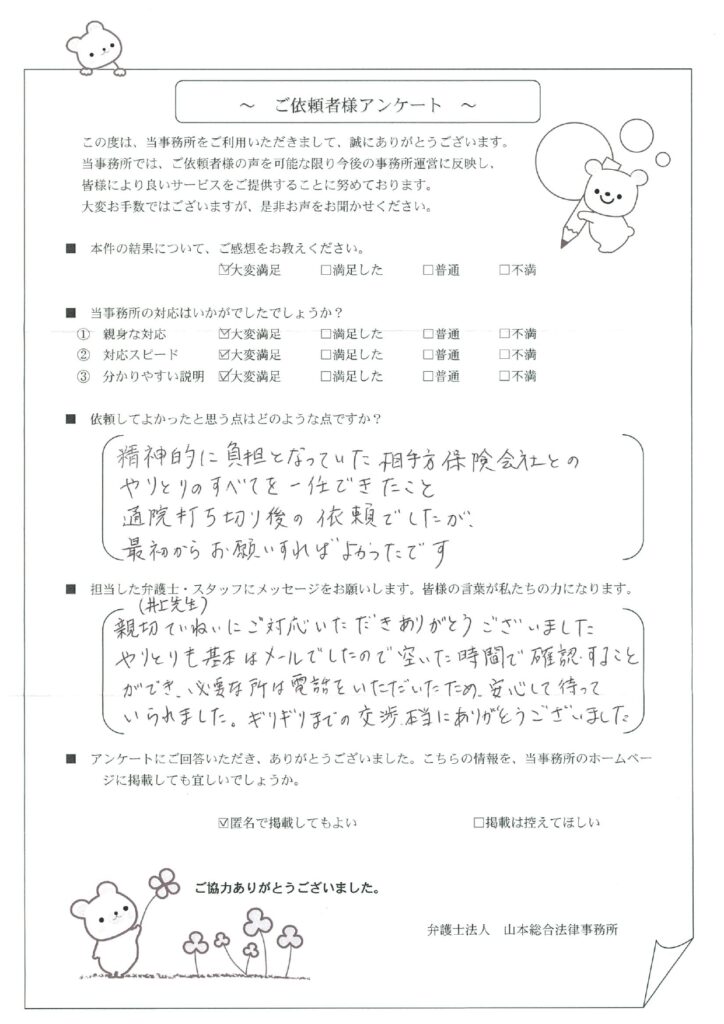 ～ ご依頼者様アンケート ～
この度は、当事務所をご利用いただきまして、誠にありがとうございます。
当事務所では、ご依頼者様の声を可能な限り今後の事務所運営に反映し、
皆様により良いサービスをご提供することに努めております。
大変お手数ではございますが、是非お声をお聞かせください。
■ 本件の結果について、ご感想をお教えください。
☑大変満足 □満足した □普通 □不満
■ 当事務所の対応はいかがでしたでしょうか？
① 親身な対応 ☑大変満足 □満足した □普通 □不満
② 対応スピード ☑大変満足 □満足した □普通 □不満
③ 分かりやすい説明 ☑大変満足 □満足した □普通 □不満
■ 依頼してよかったと思う点はどのような点ですか？
精神的に負担となっていた相手方保険会社との
やりとりのすべてを一任できたこと
通院打ち切り後の依頼でしたが、
最初からお願いすればよかったです
■ 担当した弁護士・スタッフにメッセージをお願いします。皆様の言葉が私たちの力になります。
(井上先生)
親切ていねいにご対応いただきありがとうございました
やりとりも基本はメールでしたので空いた時間で確認することができ、必要な所は電話をいただいたため、安心して待って
いられました。ギリギリまでの交渉、本当にありがとうございました
■ アンケートにご回答いただき、ありがとうございました。こちらの情報を、当事務所のホームペー
ジに掲載しても宜しいでしょうか。
☑匿名で掲載してもよい □掲載は控えてほしい
ご協力ありがとうございました。
弁護士法人 山本総合法律事務所